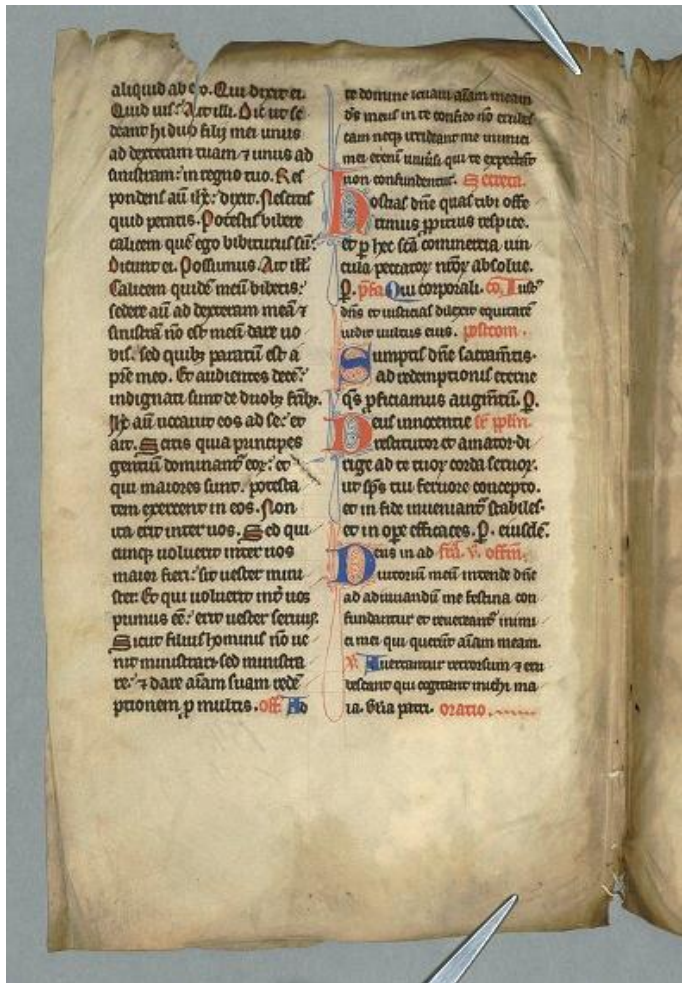 aliquid ab eo. Qui dixit ei.
Quid uis? Ait illi. Dic ut se
deant hi duo filij mei unus
ad dexteram tuam ⁊ unus ad
sinistram: in regno tuo. Res
pondens aū ihc: dixit. Nescitis
quid petatis. Potestis bibere
calicem quē ego bibiturus sū:
Dicunt ei. Possumus. Ait ill̄.
Calicem quidē meū bibetis:
sedere aū ad dexteram meā ⁊
sinistrā nō est meū dare uo
bis. sed quibꝫ paratū est a
pr̄e meo. Et audientes decē:
indignati sunt de duobꝫ fr̄ibꝫ.
Ihc aū uocauit eos ad se: et
ait. Scitis quia principes
gentiū dominant̄ eoꝝ: et
qui maiores sunt. potesta
tem exercent in eos. Non
ita erit inter uos. Sed qui
cunqꝫ uoluerit inter uos
maior fieri: sit uester mini
ster: Et qui uoluerit int̄ uos
primus eē: erit uester seruus.
Sicut filius hominis nō ue
nit ministrari sed ministra
re: ⁊ dare aīam suam redē
ptionem ꝓ multis. off. Ad
te domine leuaui aīam meam
ds̄ meus in te confido nō erubes
cam neqꝫ irrideant me inimici
mei etenī uniūsi qui te expectāt
non confundentur. Secreta.
Hostias dn̄e quas tibi offe
rimus ꝓpitius respice.
et ꝑ hec sc̄a commercia uin
cula peccatoꝝ nr̄oꝝ absolue.
P. p̄fa Qui corporali. co. Iust᷒
dn̄s et iusticias dilexit equitatē
uidit uultus eius. postcom.
Sumptis dn̄e sacram̄tis.
ad redemptionis eterne
qs̄ ꝓficiamus augm̄tū. P.
Deus innocentie sr̄ pplm̄.
restitutor et amator. di
rige ad te tuoꝝ corda seruoꝝ.
ut sp̄s tui feruore concepto.
et in fide inueniant̄ stabiles.
et in oꝑe efficaces. P. eiusdē.
Deus in ad fr̄a. v. offm̄.
iutoriū meū intende dn̄e
ad adiuuandū me festina con
fundantur et reuereant̄ inimi
ci mei qui querūt aīam meam.
v. Auertantur retrorsum ⁊ eru
bescant qui cogitant michi ma
la. Gl̄ia patri. oratio.